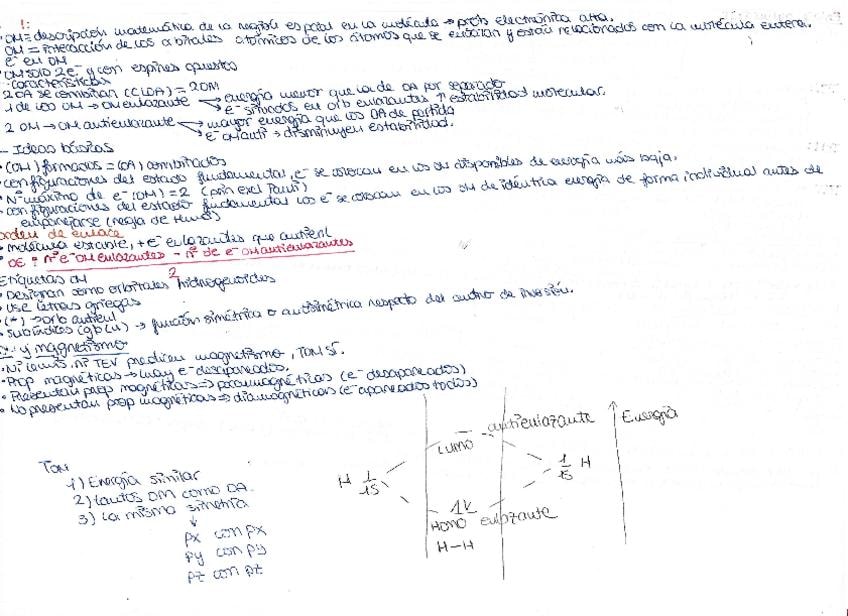 · OM = descripción matemática de la región espacial en la molécula → prob electrónica alta.
OM = interacción de los orbitales atómicos de los átomos que se enlazan y están relacionados con la molécula entera.
e⁻ en OM
OM solo 2e⁻ y con espines opuestos
· características
2 OA se combinan (CLOA) = 2 OM
1 de los OM → OM enlazante → energía menor que la de OA por separado
→ e⁻ situados en orb enlazantes ↑ estabilidad molecular.
2 OM → OM antienlazante → mayor energía que los OA de partida
→ e⁻ OM anti → disminuyen estabilidad.
- Ideas básicas
· (OM) formados = (OA) combinados
· configuraciones del estado fundamental, e⁻ se colocan en los OM disponibles de energía más baja.
· Nº máximo de e⁻ (OM) = 2 (prin excl Pauli)
· configuraciones del estado fundamental los e⁻ se colocan en los OM de idéntica energía de forma individual antes de
emparejarse (regla de Hund)
orden de enlace
· molécula estable, + e⁻ enlazantes que antienl
· OE = nº e⁻ OM enlazantes - nº de e⁻ OM antienlazantes
2
Etiquetas OM
· Designan como orbitales hidrogenoides
· Use letras griegas
· (*) → orb antienl
· subíndices (g) o (u) → función simétrica o antisimétrica respecto del centro de inversión.
y magnetismo
· Ni Lewis, ni TEV predicen magnetismo, TOM sí.
· Prop magnéticas → hay e⁻ desapareados.
· Presentan prop magnéticas → paramagnéticas (e⁻ desapareados)
· No presentan prop magnéticas → diamagnéticas (e⁻ apareados todos)
TOM
1) Energía similar
2) tantos OM como OA.
3) la misma simetría
↓
px con px
py con py
pz con pz
antienlazante
LUMO
H 1
1s
1 H
1s
Energía
HOMO enlazante
H-H